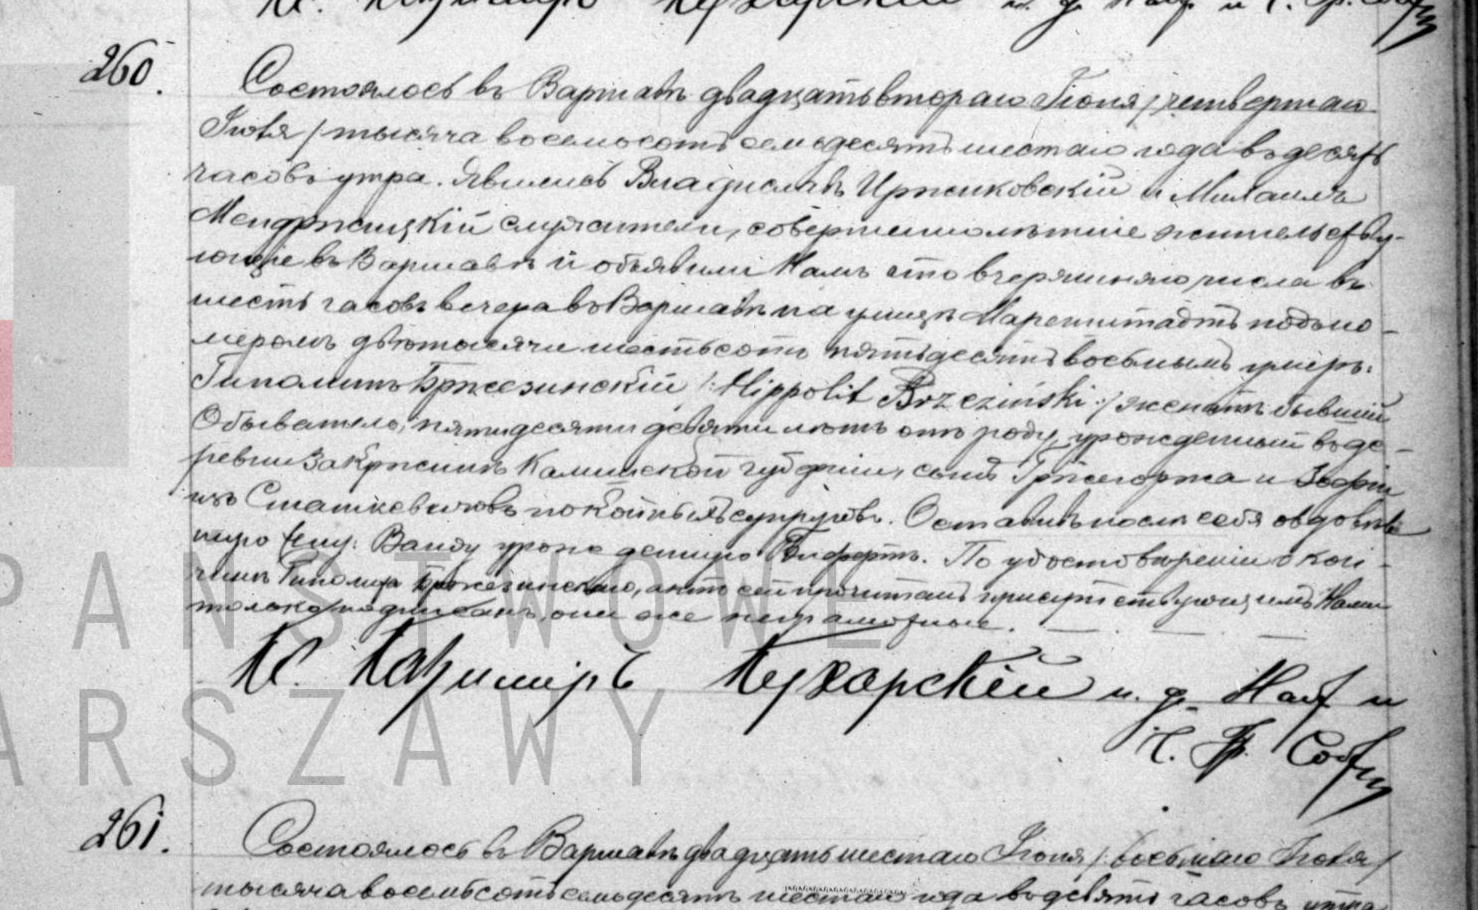 К. Казимиръ Кухарскій и. д. Наст и Ч. Гр. Сост
260.
Состоялось въ Варшавѣ двадцать втораго Іюня / четвертаго
Іюля / тысяча восемьсотъ семьдесятъ шестаго года въ десять
часовъ утра. Явились Владиславъ и Михаилъ
Мендржицкій служители, совершеннолѣтніе жительству-
ющіе въ Варшавѣ и объявили Намъ что вчерашняго числа въ
шесть часовъ вечера въ Варшавѣ на улицѣ Маріенштадтъ подъ но-
меромъ двѣ тысячи шестьсотъ пятьдесятъ восьмымъ умеръ:
Гиполитъ Бржезинскій /: Hippolit Brzeziński :/ женатъ бывшій
Обыватель, пятидесяти девяти лѣтъ отъ роду, урожденный въ де-
ревни Закржинѣ Калишской губерніи, сынъ Гржегоржа и Зофіи
изъ Сташкевичовъ покойныхъ супруговъ. Оставивъ послѣ себя овдовѣв-
шую жену: Ванду урожденную. По удостовѣреніи о кон-
чинѣ Гиполита Бржезинскаго, актъ сей прочитанъ присутствующимъ Нами
только подписанъ, они же неграмотные.
К. Казимиръ Кухарскій и. д. Наст и
Ч. Гр. Сост
261.
Состоялось въ Варшавѣ двадцать шестаго Іюня / восьмаго Іюля /
тысяча восемьсотъ семьдесятъ шестаго года въ девять часовъ утра
PAŃSTWOWE
ARSZAWY